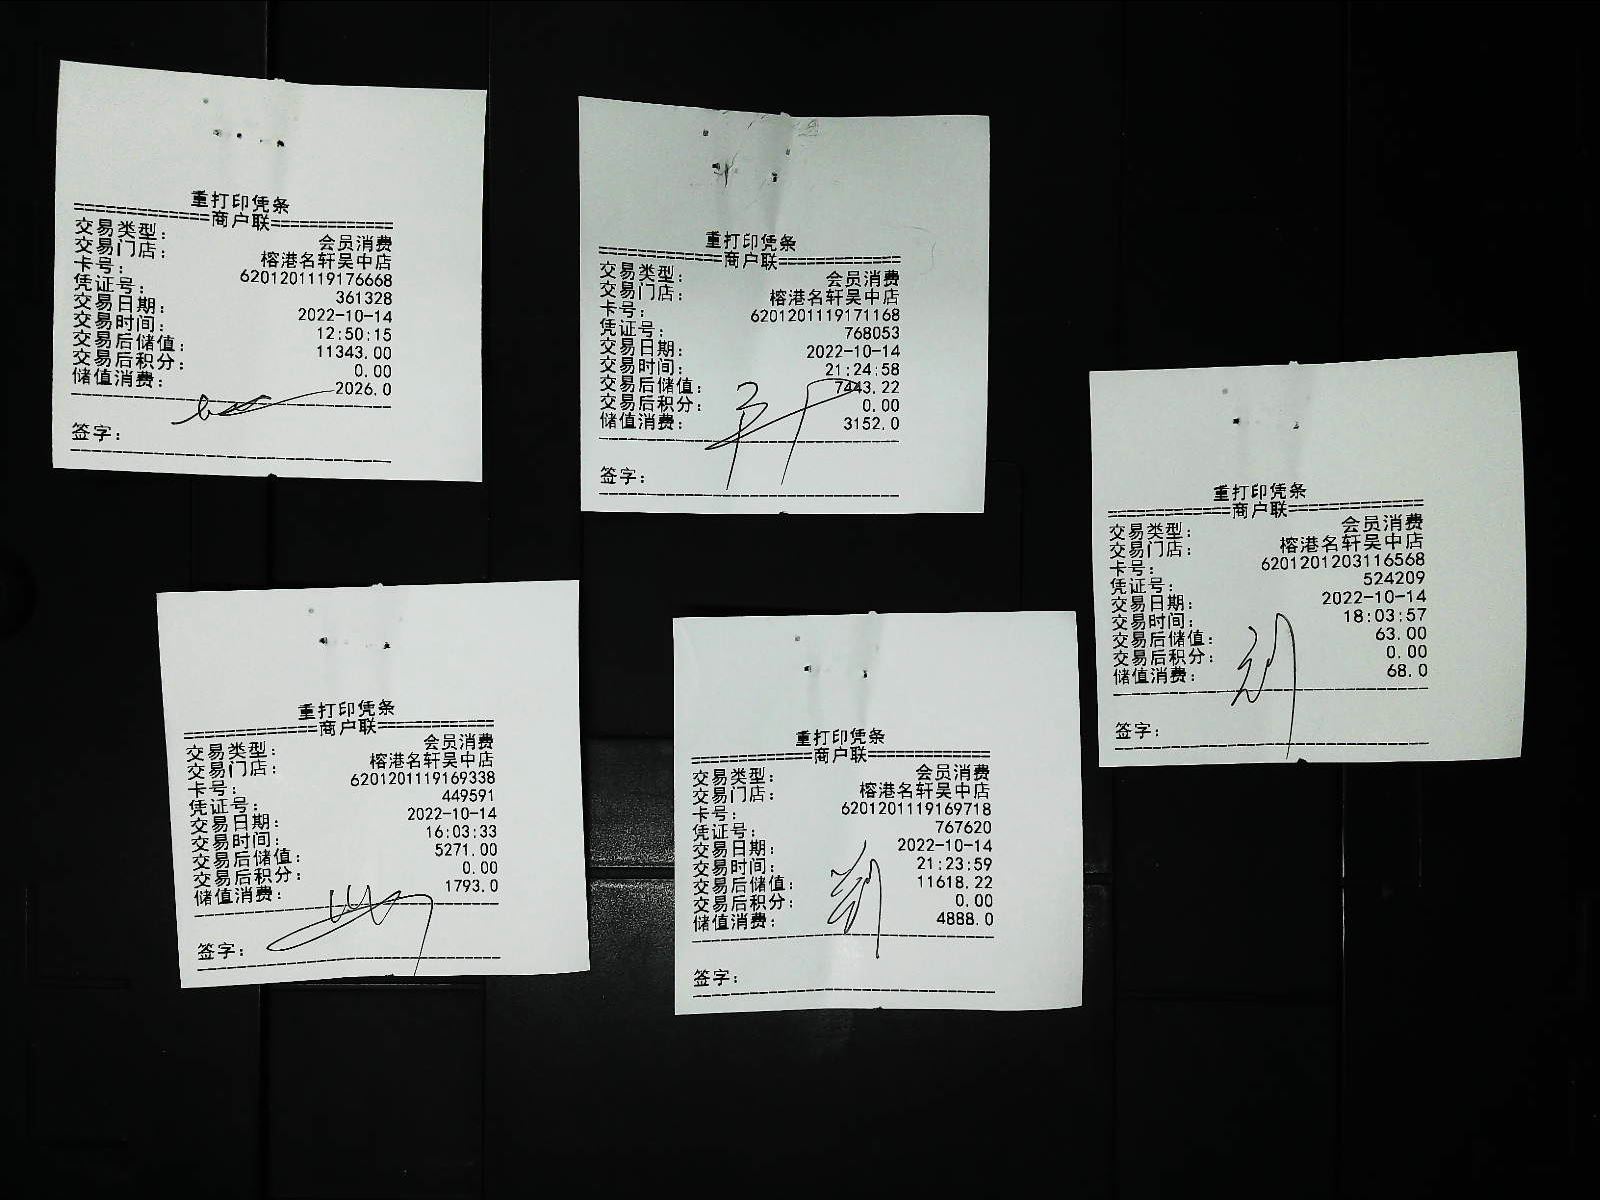 重打印凭条
=============商户联============
交易类型: 会员消费
交易门店: 榕港名轩吴中店
卡号: 6201201119176668
凭证号: 361328
交易日期: 2022-10-14
交易时间: 12:50:15
交易后储值: 11343.00
交易后积分: 0.00
储值消费: 2026.0
签字:
重打印凭条
=============商户联============
交易类型: 会员消费
交易门店: 榕港名轩吴中店
卡号: 6201201119171168
凭证号: 768053
交易日期: 2022-10-14
交易时间: 21:24:58
交易后储值: 7443.22
交易后积分: 0.00
储值消费: 3152.0
签字:
重打印凭条
=============商户联============
交易类型: 会员消费
交易门店: 榕港名轩吴中店
卡号: 6201201203116568
凭证号: 524209
交易日期: 2022-10-14
交易时间: 18:03:57
交易后储值: 63.00
交易后积分: 0.00
储值消费: 68.0
签字:
重打印凭条
=============商户联============
交易类型: 会员消费
交易门店: 榕港名轩吴中店
卡号: 6201201119169338
凭证号: 449591
交易日期: 2022-10-14
交易时间: 16:03:33
交易后储值: 5271.00
交易后积分: 0.00
储值消费: 1793.0
签字:
重打印凭条
=============商户联============
交易类型: 会员消费
交易门店: 榕港名轩吴中店
卡号: 6201201119169718
凭证号: 767620
交易日期: 2022-10-14
交易时间: 21:23:59
交易后储值: 11618.22
交易后积分: 0.00
储值消费: 4888.0
签字: